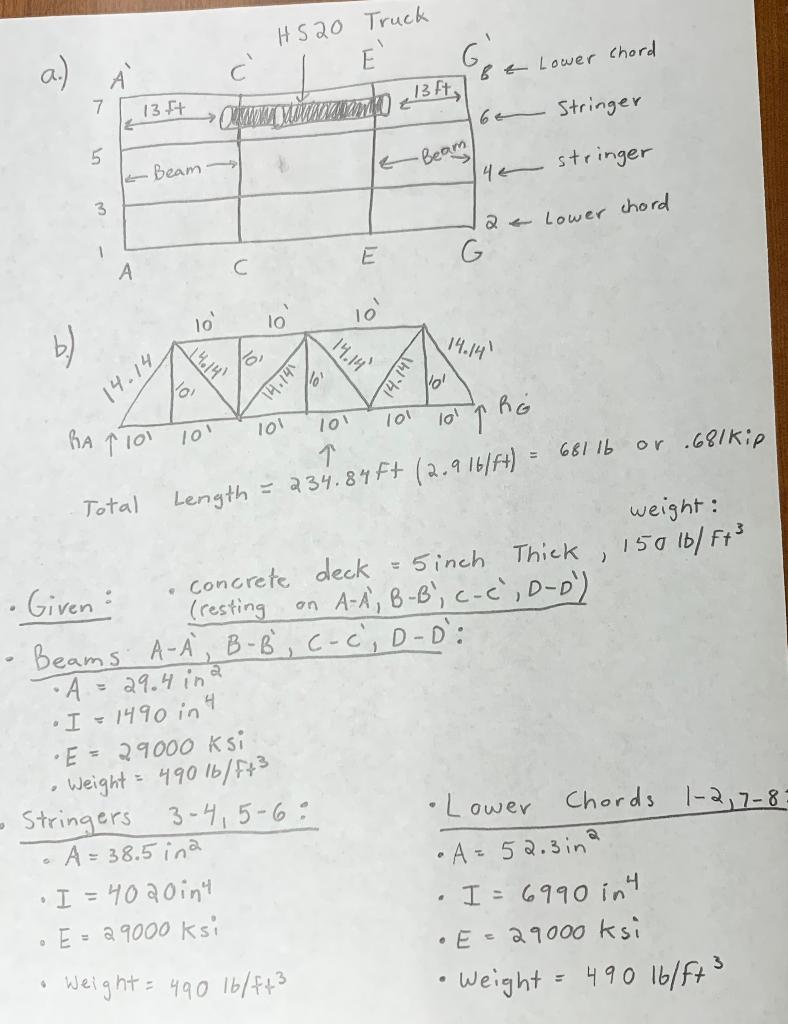 a.)
HS20 Truck
A' C' E' G'
7 13 ft 13 ft 8 ← Lower chord
6 ← Stringer
5 ← Beam → ← Beam → 4 ← stringer
3
1 2 ← Lower chord
A C E G
b.)
10' 10' 10'
14.14 10' 14.14' 10' 14.14' 10' 14.14' 14.14' 10' 14.14'
RA ↑ 10' 10' 10' 10' 10' 10' ↑ RG
↑
Total Length = 234.84 ft (2.9 lb/ft) = 681 lb or .681 Kip
• Given: • concrete deck = 5 inch Thick, weight: 150 lb/ft³
(resting on A-A', B-B', C-C', D-D')
• Beams A-A', B-B', C-C', D-D':
• A = 29.4 in²
• I = 1490 in⁴
• E = 29000 Ksi
• Weight = 490 lb/ft³
• Stringers 3-4, 5-6:
• A = 38.5 in²
• I = 4020 in⁴
• E = 29000 Ksi
• Weight = 490 lb/ft³
• Lower Chords 1-2, 7-8:
• A = 52.3 in²
• I = 6990 in⁴
• E = 29000 ksi
• Weight = 490 lb/ft³